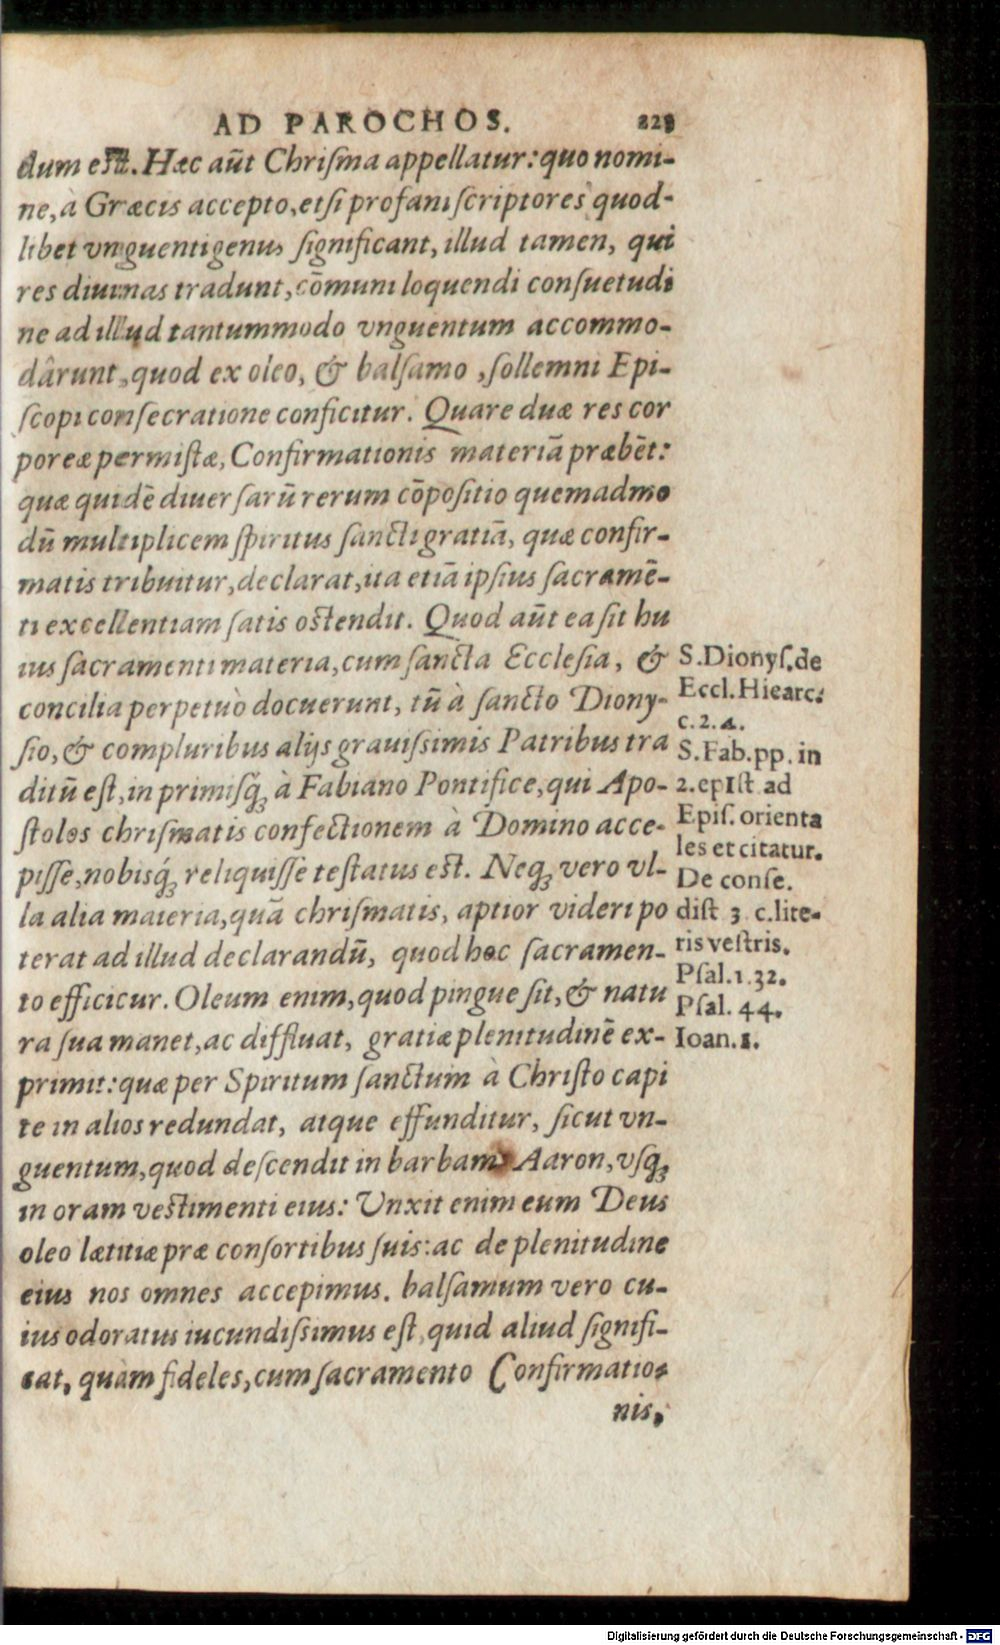 AD PAROCHOS. 229
dum est. Hæc aūt Chriſma appellatur: quo nomi-
ne, à Græcis accepto, etſi profani ſcriptores quod-
libet vnguenti genus ſignificant, illud tamen, qui
res diuinas tradunt, cōmuni loquendi conſuetudi
ne ad illud tantummodo vnguentum accommo-
dârunt, quod ex oleo, & balſamo, ſollemni Epi-
ſcopi conſecratione conficitur. Quare duæ res cor
poreæ permiſtæ, Confirmationis materiā præbēt:
quæ quidē diuerſarū rerum cōpoſitio quemadmo
dū multiplicem ſpiritus ſancti gratiā, quæ confir-
matis tribuitur, declarat, ita etiā ipſius ſacramē-
ti excellentiam ſatis oſtendit. Quod aūt ea ſit hu
ius ſacramenti materia, cum ſancta Eccleſia, &
concilia perpetuò docuerunt, tū à ſancto Diony-
ſio, & compluribus alijs grauiſsimis Patribus tra
ditū eſt, in primisq́ꝫ à Fabiano Pontifice, qui Apo-
ſtolos chriſmatis confectionem à Domino acce-
piſſe, nobisq́ꝫ reliquiſſe teſtatus eſt. Neqꝫ vero vl-
la alia materia, quā chriſmatis, aptior videri po
terat ad illud declarandū, quod hoc ſacramen-
to efficicur. Oleum enim, quod pingue ſit, & natu
ra ſua manet, ac diffluat, gratiæ plenitudinē ex-
primit: quæ per Spiritum ſanctum à Chriſto capi
te in alios redundat, atque effunditur, ſicut vn-
guentum, quod deſcendit in barbam Aaron, vſqꝫ
in oram veſtimenti eius: Unxit enim eum Deus
oleo lætitiæ præ conſortibus ſuis: ac de plenitudine
eius nos omnes accepimus. balſamum vero cu-
ius odoratus iucundiſsimus eſt, quid aliud ſignifi-
cat, quàm fideles, cum ſacramento Confirmatio-
nis,
S. Dionyſ. de
Eccl. Hiearc.
c. 2. 4.
S. Fab. pp. in
2. epIſt ad
Epiſ. orienta
les et citatur.
De conſe.
diſt 3 c. lite-
ris veſtris.
Pſal. 132.
Pſal. 44.
Ioan. 1.
Digitalisierung gefördert durch die Deutsche Forschungsgemeinschaft - DFG